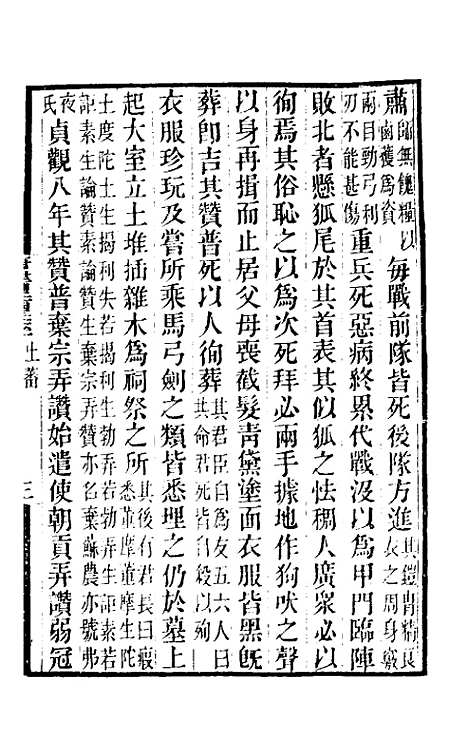 肅師無餽糧以鹵獲爲資每戰前隊皆死後隊方進其鎧胄精良衣之周身竅
兩目勁弓利刃不能甚傷重兵死惡病終累代戰沒以爲甲門臨陣
敗北者懸狐尾於其首表其似狐之怯稠人廣衆必以
徇焉其俗恥之以爲次死拜必兩手據地作狗吠之聲
以身再揖而止居父母喪截髮青黛塗面衣服皆黑旣
葬卽吉其贊普死以人徇葬其君臣自爲友五六人曰其命君死皆自殺以殉
衣服珍玩及嘗所乘馬弓劍之類皆悉埋之仍於墓上
起大室立土堆插雜木爲祠祭之所其後有君長曰瘕悉董摩董摩生陀
土度陀土生揭利失若揭利生勃弄若勃弄生詎素若
詎素生論贊素論贊生棄宗弄贊亦名棄蘇農亦號弗
夜氏貞觀八年其贊普棄宗弄讚始遣使朝貢弄讚弱冠
土蕃
三